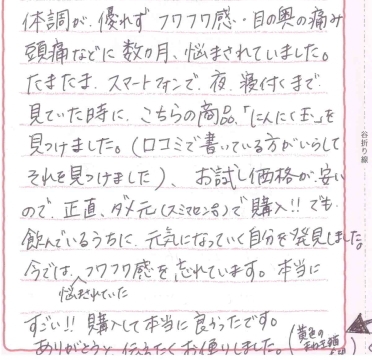 体調が、優れず フワフワ感・目の奥の痛み
頭痛などに 数ヵ月、悩まされていました。
たまたま、スマートフォンで、夜、寝付くまで
見ていた時に、こちらの商品、「にんにく玉」を
見つけました。(口コミで書いている方がいらして
それを見つけました)、お試し価格が安い
ので、正直、ダメ元(スミマセン)で購入!! でも
飲んでいるうちに、元気になっていく自分を発見しました。
今では、フワフワ感を忘れています。本当に
悩まされていた
すごい!! 購入して本当に良かったです。
ありがとうと 伝えたくお便りしました。(黄色の
谷折り線